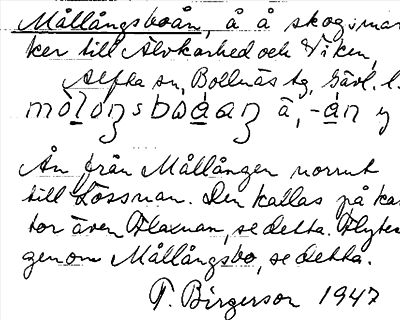 Mållångsboån, å å skogsmar
ker till Älvkarhed och Viken,
Alfta sn, Bollnäs tg, Gävl. l.
Ån från Mållången norrut
till Lössnan. Den kallas på kar
tor även Flaxnan, se detta. Flyter
genom Mållångsbo, se detta.
T. Birgerson 1947